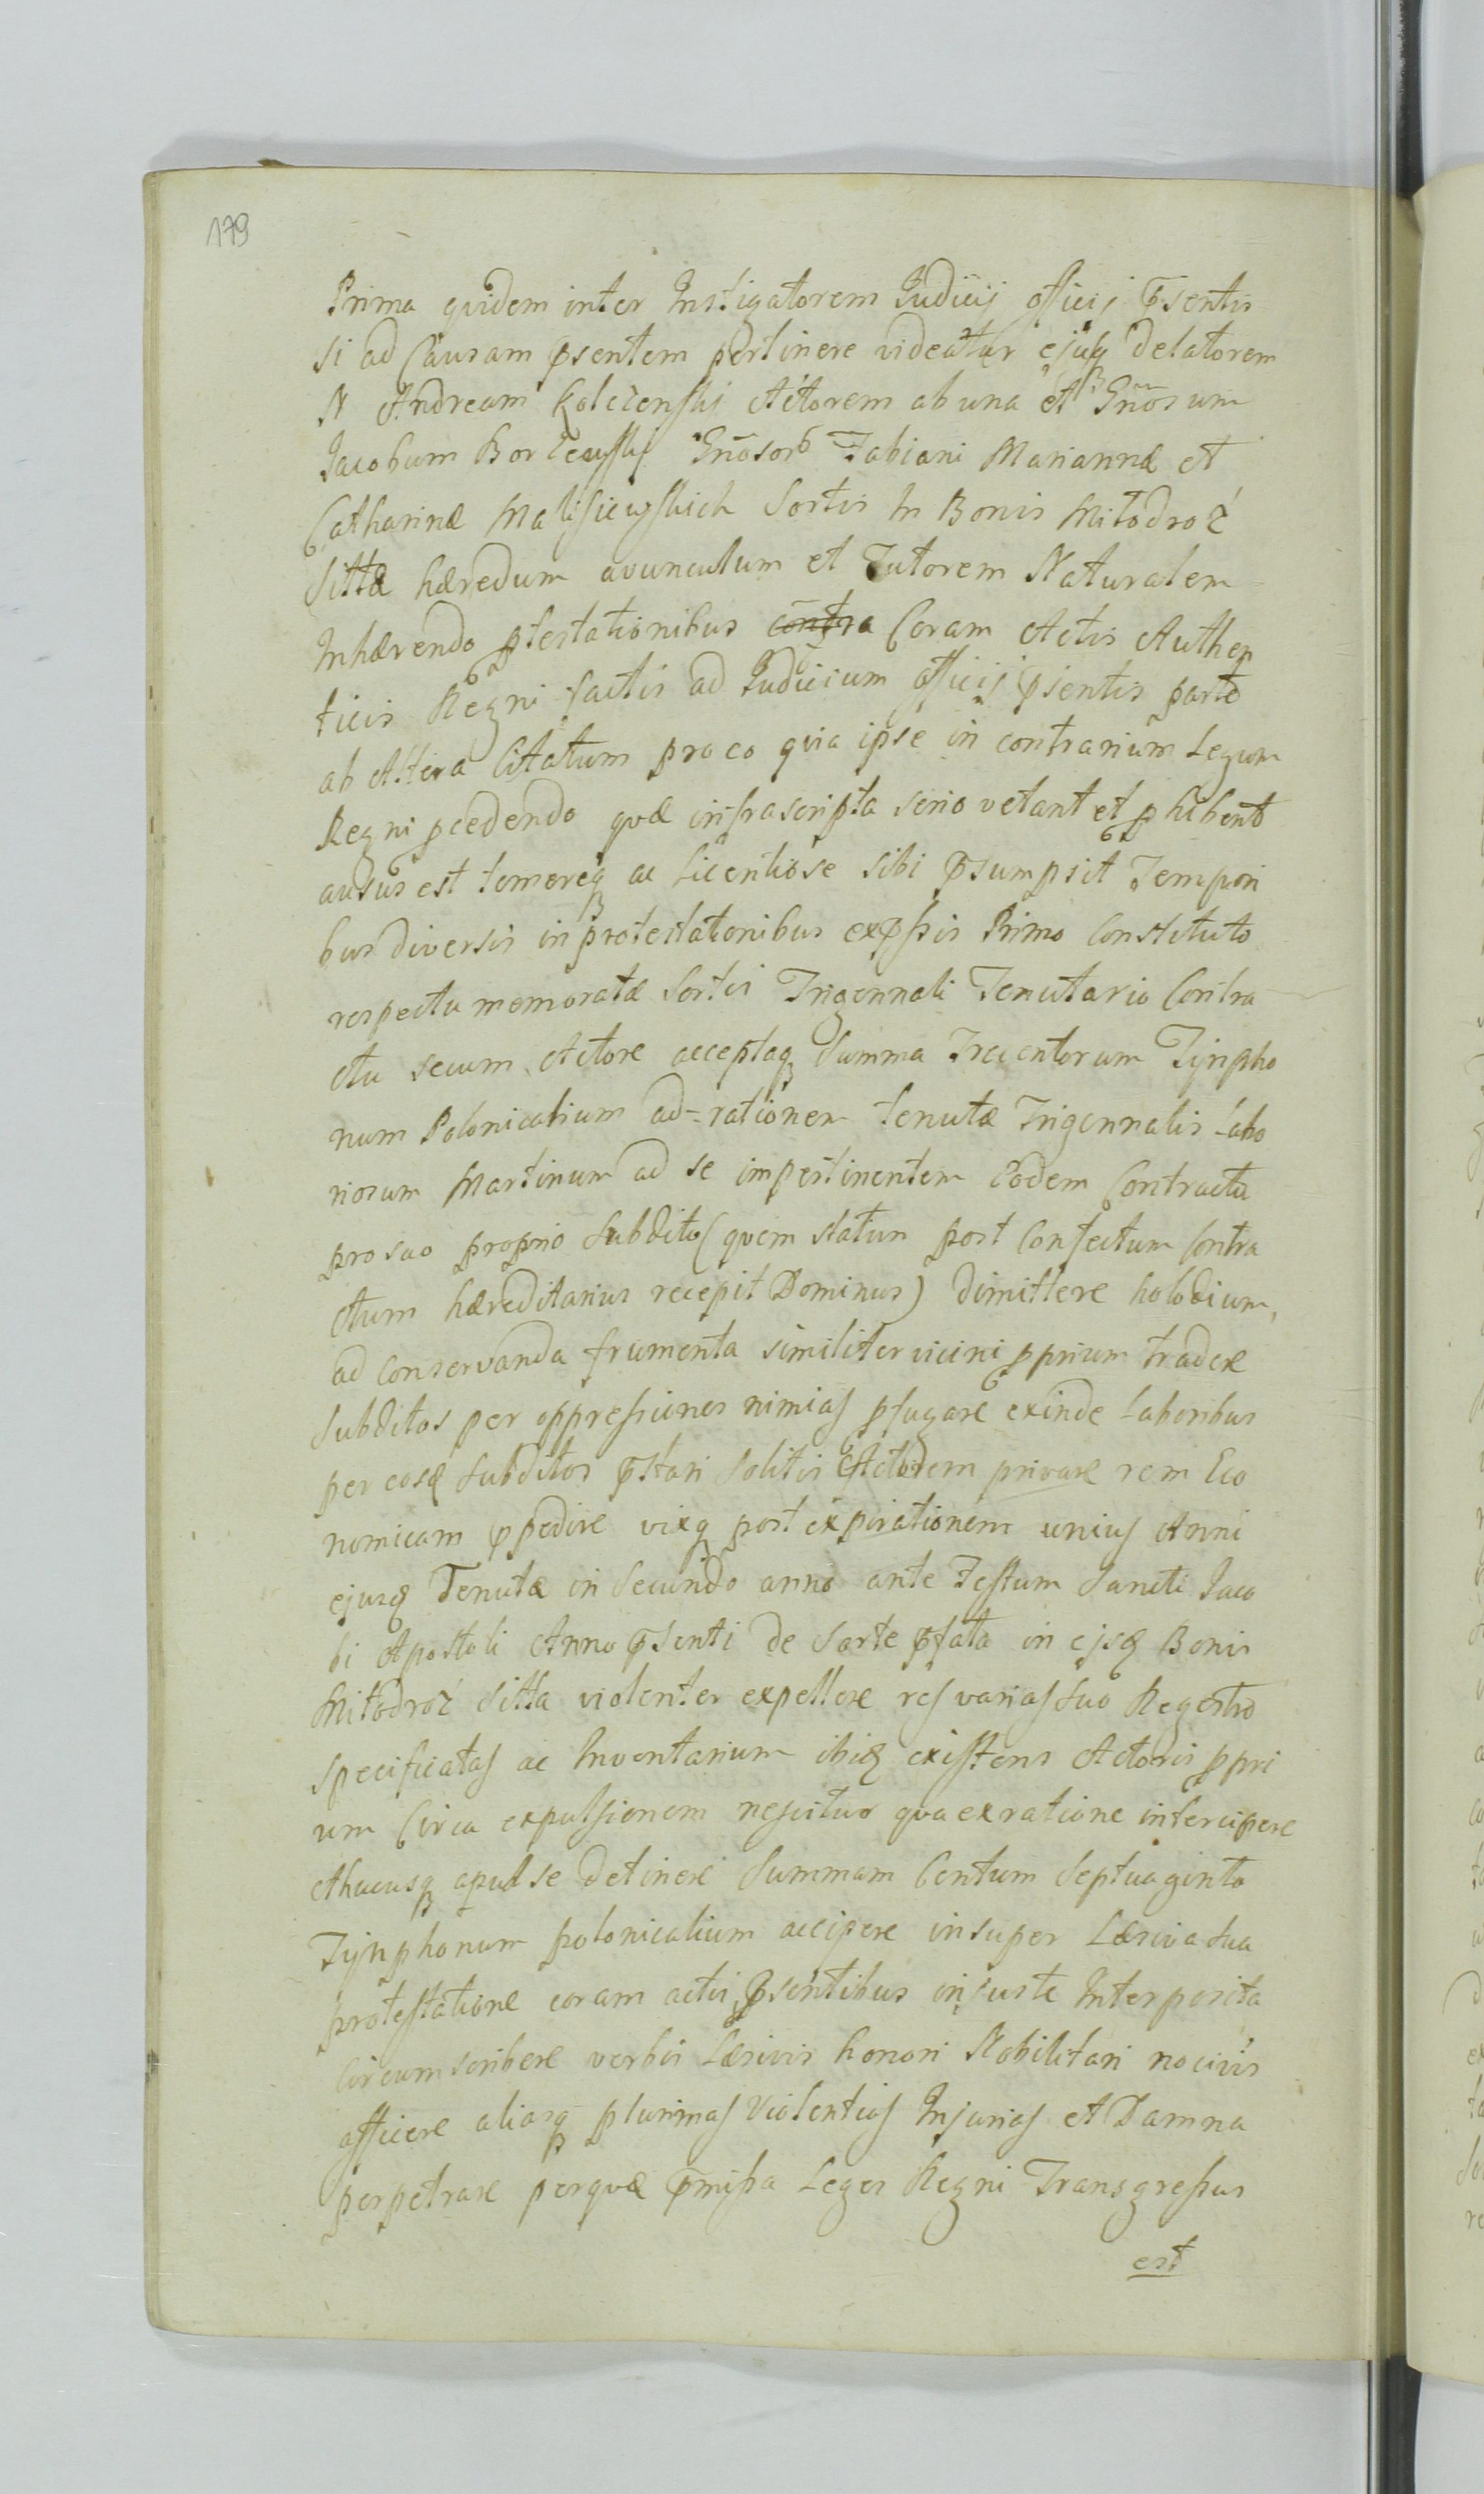 179
Prima quidem inter Instigatorem Judicij officij p̃sentis
si ad Causam p̃sentem pertinere videatur ejusq̃ delatorem
N Andream Actorem ab una et Gñosum
Jacobum Gñosorũ Fabiani Mariannæ et
Catharinæ Sortis in Bonis Mitodroż
sittæ hæredum avunculum et Tutorem Naturalem
Inhærendo p̃testationibus contra Coram Actis Authen
ticis Regni factis ad Judicium officij p̃sentis parte
ab Altera Citatum pro eo quia ipse in contrarium Legum
Regni p̃cedendo quæ infrascripta serio vetant et p̃hibent
ausus est temereq̃ ac Licentiose sibi p̃sumpsit Tempori
bus diversis in protestationibus exp̃ssis Primo Constituto
respectu memoratæ Sortis Trigennali Tenutario Contra
ctu secum Actore acceptaq̃ Summa Trecentorum Tynpho
num Polonicalium ad-rationem tenutæ Trigennalis Labo
riosum Martinum ad se impertinentem Eodem Contractu
pro suo proprio Subdito (quem statim post Confectum Contra
ctum hæreditarius recepit Dominus) dimittere holodium,
ad conservanda frumenta similiter vicini p̃prium tradere
Subditos per oppressiones nimias p̃fugare exinde Laboribus
per eosq̃ Subditos p̃stari Solitis Actorem privare rem Eco
nomicam p̃pedire vixq̃ post expirationem unius Anni
ejusq̃ Tenutæ in Secundo anno ante Festum Sancti Jaco
bi Apostoli Anno p̃senti de Sorte p̃fata in ejsq̃ Bonis
Mitodroż Sitta violenter expellere res varias suo Regestro
specificatas ac Inventarium ibiq̃ existens Actoris p̃pri
um Circa expulsionem nescitur qua ex ratione intercipere
et hucusq̃ apud se detinere Summam Centum Septuaginta
Tynphonum polonicalium accipere insuper Læsiva sua
protestatione coram actis p̃sentibus injuste Interposita
Circumscribere verbis Læsivis honori Nobilitari nocivis
afficere aliasq̃ plurimas Violentias Injurias et Damna
perpetrare perquæ p̃missa Leges Regni Transgressus
est